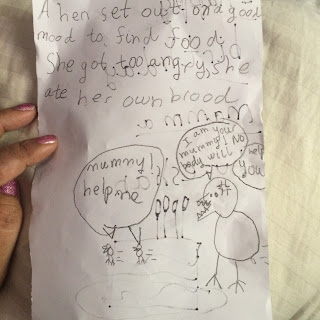 A hen set out on a good
mood to find food.
She got too angry, she
ate her own brood
mummy!
help me
I am your
mummy! No
body will
help
you